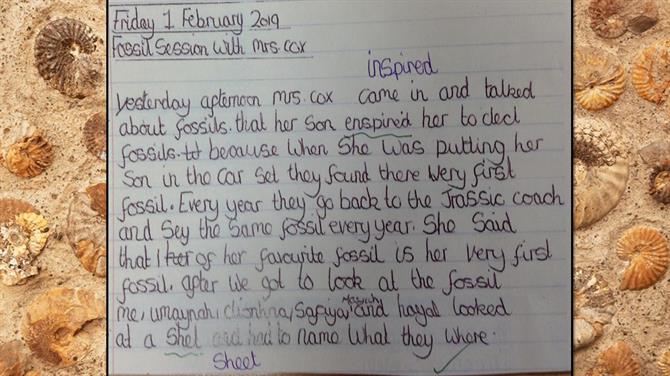 Friday 1 February 2019
Fossil Session with mrs. cox
inspired
yesterday afternoon mrs. cox came in and talked
about fossils. that her son enspired her to clecl
fossils. because when She was putting her
Son in the car Set they found there very first
fossil. Every year they go back to the Jrassic coach
and Sey the Same fossil every year. She Said
that of her favourite fossil is her very first
fossil. after we got to look at the fossil
me, umaynah, Safiya, and hayal looked
at a Shel and had to name What they where.
Sheet